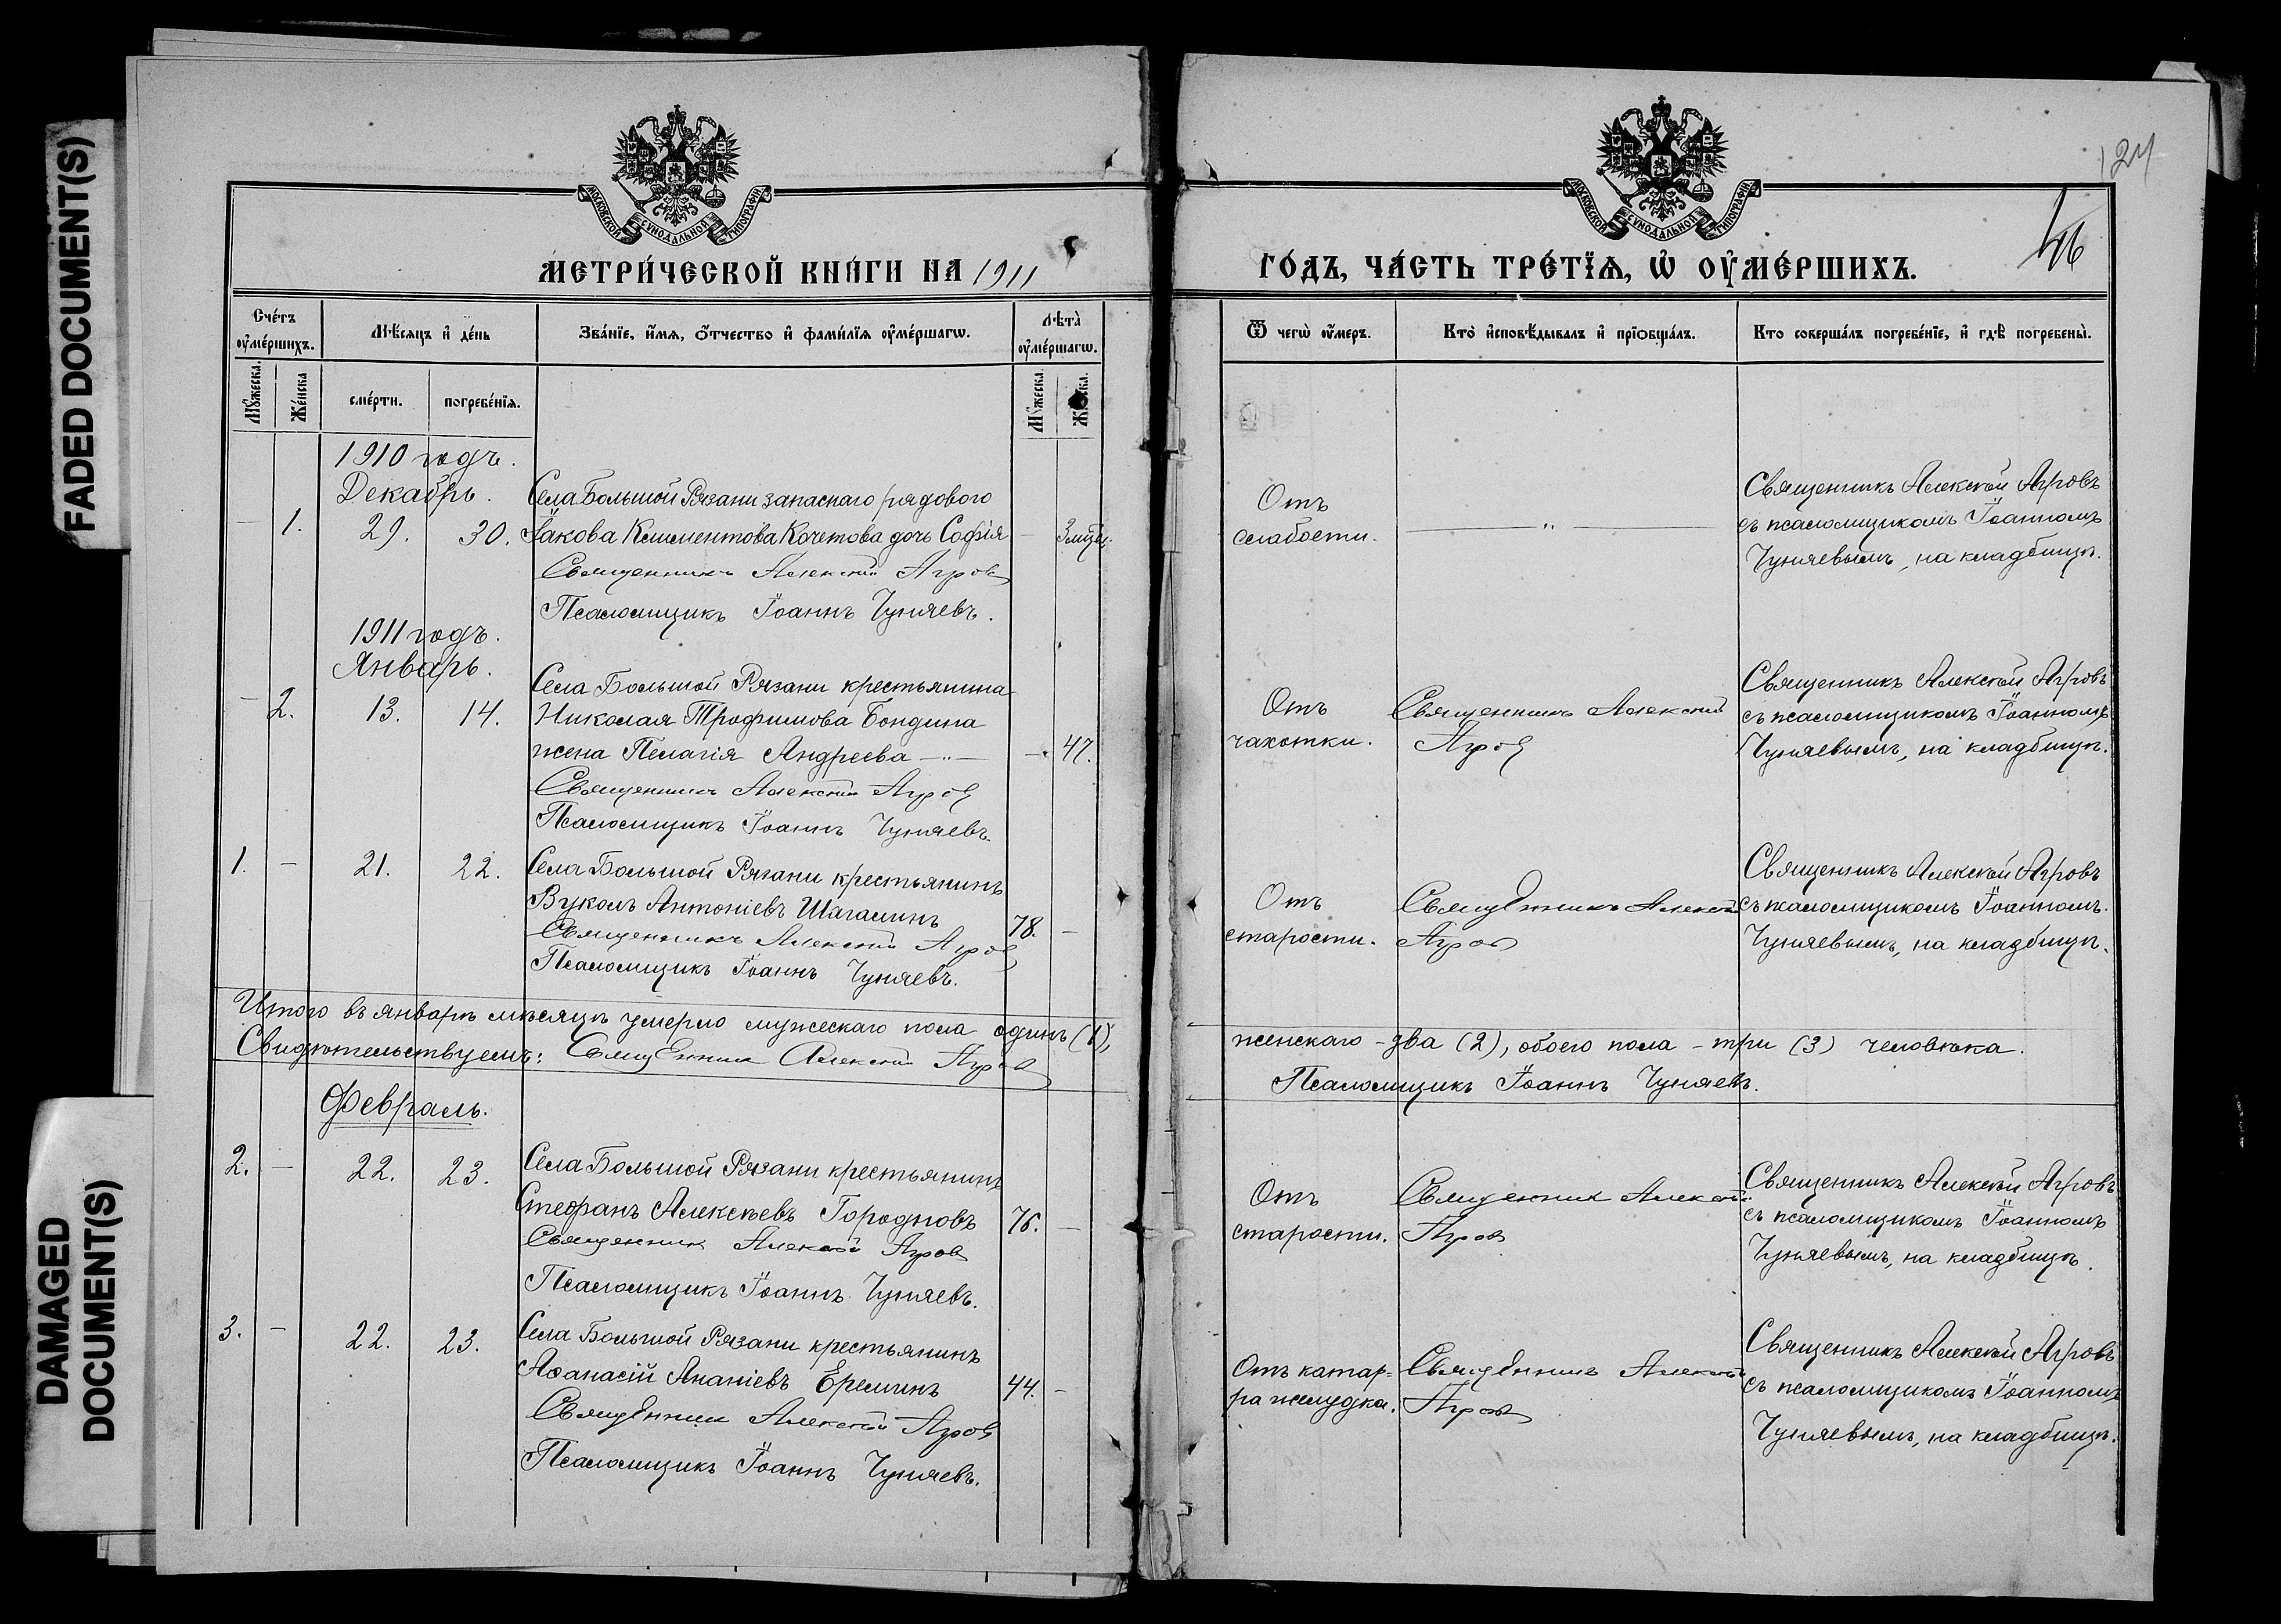 FADED DOCUMENT(S)
DAMAGED
DOCUMENT(S)
МОСКОВСКОЙ СѴНОДАЛЬНОЙ ТИПОГРАФІИ
МЕТРИ́ЧЕСКОЙ КНИ́ГИ НА 1911
Сче́тъ ᲂу҆ме́ршихъ.
Мѣ́сяцъ и҆ де́нь
Зва́нїе, и҆́мя, ѻ҆́тчество и҆ фами́лїя ᲂу҆ме́ршагѡ.
Лѣта̀ ᲂу҆ме́ршагѡ.
Мꙋ́жеска.
Же́нска
сме́рти.
погребе́нїя.
Мꙋ́жеска.
1910 годъ.
Декабрь.
Села Большой Рязани запаснаго рядового
— 1. 29. 30. Іакова Климентова Кочетова дочь Софія — 3 мѣс.
Священникъ Алексій Агровъ
Псаломщикъ Іоаннъ Чуняевъ.
1911 годъ.
Январь.
Села Большой Рязани крестьянина
— 2. 13. 14. Николая Трофимова Бондина
жена Пелагія Андреева —"— — 47.
Священникъ Алексій Агровъ
Псаломщикъ Іоаннъ Чуняевъ.
1. — 21. 22. Села Большой Рязани крестьянинъ
Вуколъ Антоніевъ Шагалинъ 78. —
Священникъ Алексій Агровъ
Псаломщикъ Іоаннъ Чуняевъ.
Итого въ январѣ мѣсяцѣ умерло мужескаго пола одинъ (1),
Свидѣтельствуемъ: Священникъ Алексій Агровъ
Февраль.
2. — 22. 23. Села Большой Рязани крестьянинъ
Стефанъ Алексѣевъ Городновъ 76. —
Священникъ Алексій Агровъ
Псаломщикъ Іоаннъ Чуняевъ.
3. — 22. 23. Села Большой Рязани крестьянинъ
Аѳанасій Ананіевъ Ереминъ 44. —
Священникъ Алексій Агровъ
Псаломщикъ Іоаннъ Чуняевъ.
124
МОСКОВСКОЙ СѴНОДАЛЬНОЙ ТИПОГРАФІИ
ГО́ДЪ, ЧА́СТЬ ТРЕ́ТЇѦ, Ѡ҆ ОУ҆МЕ́РШИХЪ.
Ѿ чегѡ̀ ᲂу҆́меръ.
Кто̀ и҆сповѣ́дывалъ и҆ прїѡбща́лъ.
Кто соверша́лъ погребе́нїе, и҆ гдѣ̀ погребены̀.
Отъ
слабости.
—"—
Священникъ Алексій Агровъ
съ псаломщикомъ Іоанномъ
Чуняевымъ, на кладбищѣ.
Отъ
чахотки.
Священникъ Алексій
Агровъ
Священникъ Алексій Агровъ
съ псаломщикомъ Іоанномъ
Чуняевымъ, на кладбищѣ.
Отъ
старости.
Священникъ Алексій
Агровъ
Священникъ Алексій Агровъ
съ псаломщикомъ Іоанномъ
Чуняевымъ, на кладбищѣ.
женскаго – два (2), обоего пола – три (3) человѣка.
Псаломщикъ Іоаннъ Чуняевъ.
Отъ
старости.
Священникъ Алексій
Агровъ
Священникъ Алексій Агровъ
съ псаломщикомъ Іоанномъ
Чуняевымъ, на кладбищѣ.
Отъ катар=
ра желудка.
Священникъ Алексій
Агровъ
Священникъ Алексій Агровъ
съ псаломщикомъ Іоанномъ
Чуняевымъ, на кладбищѣ.